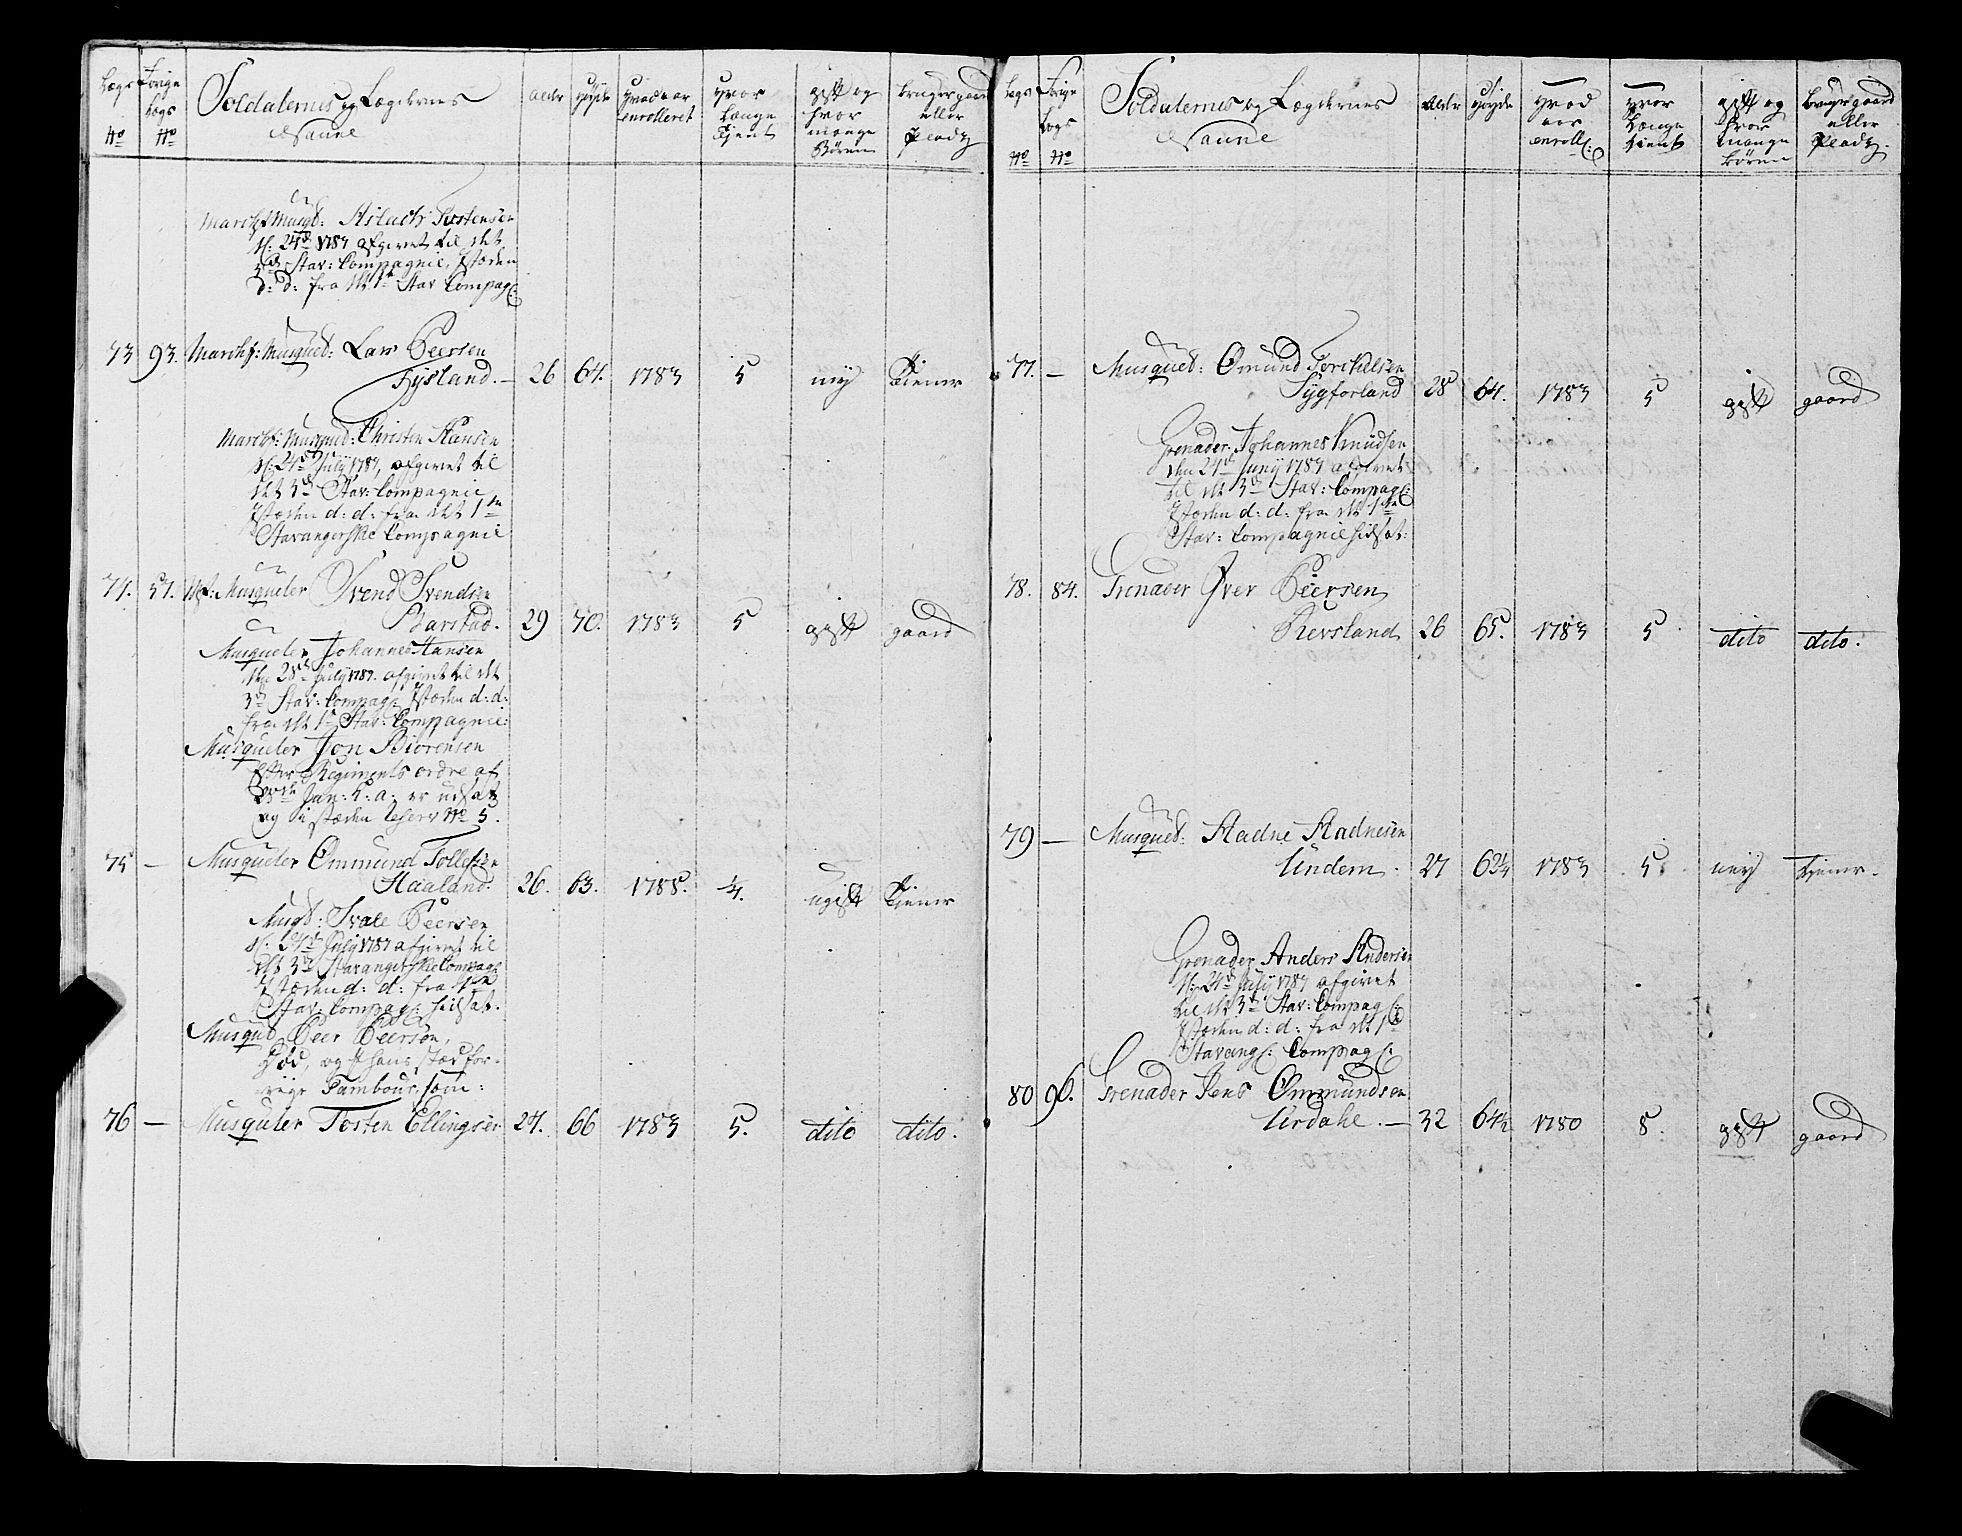 Lægs No
Forige Lægs No
Soldaternes og Lægdernes Nafne
Alder
Høyde
Hvad aar enrolleret
Hvor Længe Tient
gift og hvor mange Børen
bruger gaard eller Plads
March f Musqt: Aslach Tostensen
d: 24d 1787 afgivet til det
3d Stav: Compagnie, I stæden
d: d: fra det 1te Stav Compag:
73 93. Marchf: Musquet: Lars Peersen
Fysland. — 26 64. 1783 5 ney Tiener
Marchf: Musqued: Christen Hansen
d: 24d July 1787, afgivet til
det 3d Stav: Compagnie
I stæden d: d: fra det 1te
Stavangerske Compagnie
74. 57. Mf: Musqueter Svend Svendsen
Barstad. 29 70. 1783 5 gift gaard
Musqueter Johannes Hansen
den 28d July 1787. afgivet til det
3d Stav: Compag: I stæden d: d:
fra det 1te Stav: Compagnie:
Musqueter Jon Biorensen
efter Regiments ordre af
Jan: h: a: er udsat
og i stæden Reserv No 5.
75 — Musqueter Ommund Tollefsen
Haaland. 26. 63. 1788. 1/4. ugift Tiener
Musqt: Svale Peersen
d: 24d July 1787 afgivet til
det 3d Stavangerske Compag:
I stæden d: d: fra 1ste
Stav: Compag: hidsat.
Musqud Peer Peersen,
Død, og i hans stæd for-
rige Tambour, som:
76 — Musqueter Tosten Ellingsen 27. 66 1783 5. dito dito.
Lægs No
Forige Lægs No
Soldaternes og Lægdernes Nafne
Alder
Høyde
Hvad aar enroll:
Hvor Længe Tient
gift og hvor mange børen
bruger gaard eller Plads.
77. — Musquet: Omund Torchelsen
Sygforland 28 64. 1783 5 gift gaard
Grenader Johannes Knudsen
den 24d Juny 1787 afgivet
til det 3d Stav: Compag:
I stæden d: d: fra det 1ste
Stav: Compagnie hidsat:
78. 84. Grenader Iver Peersen
Revsland 26 65. 1783 5 dito dito.
79 — Musquet: Aadne Aadnesen
Undem. 27 62 1/4 1783 5 ney tiener.
Grenader Anders Andersen
d: 24d July 1787 afgivet
til det 3d Stav: Compag:
I stæden d: d: fra det 1te
Stavang: Compag:
80 96. Grenader Jens Ommundsen
Urdahl. — 32 64 1/2 1780 8. gift gaard